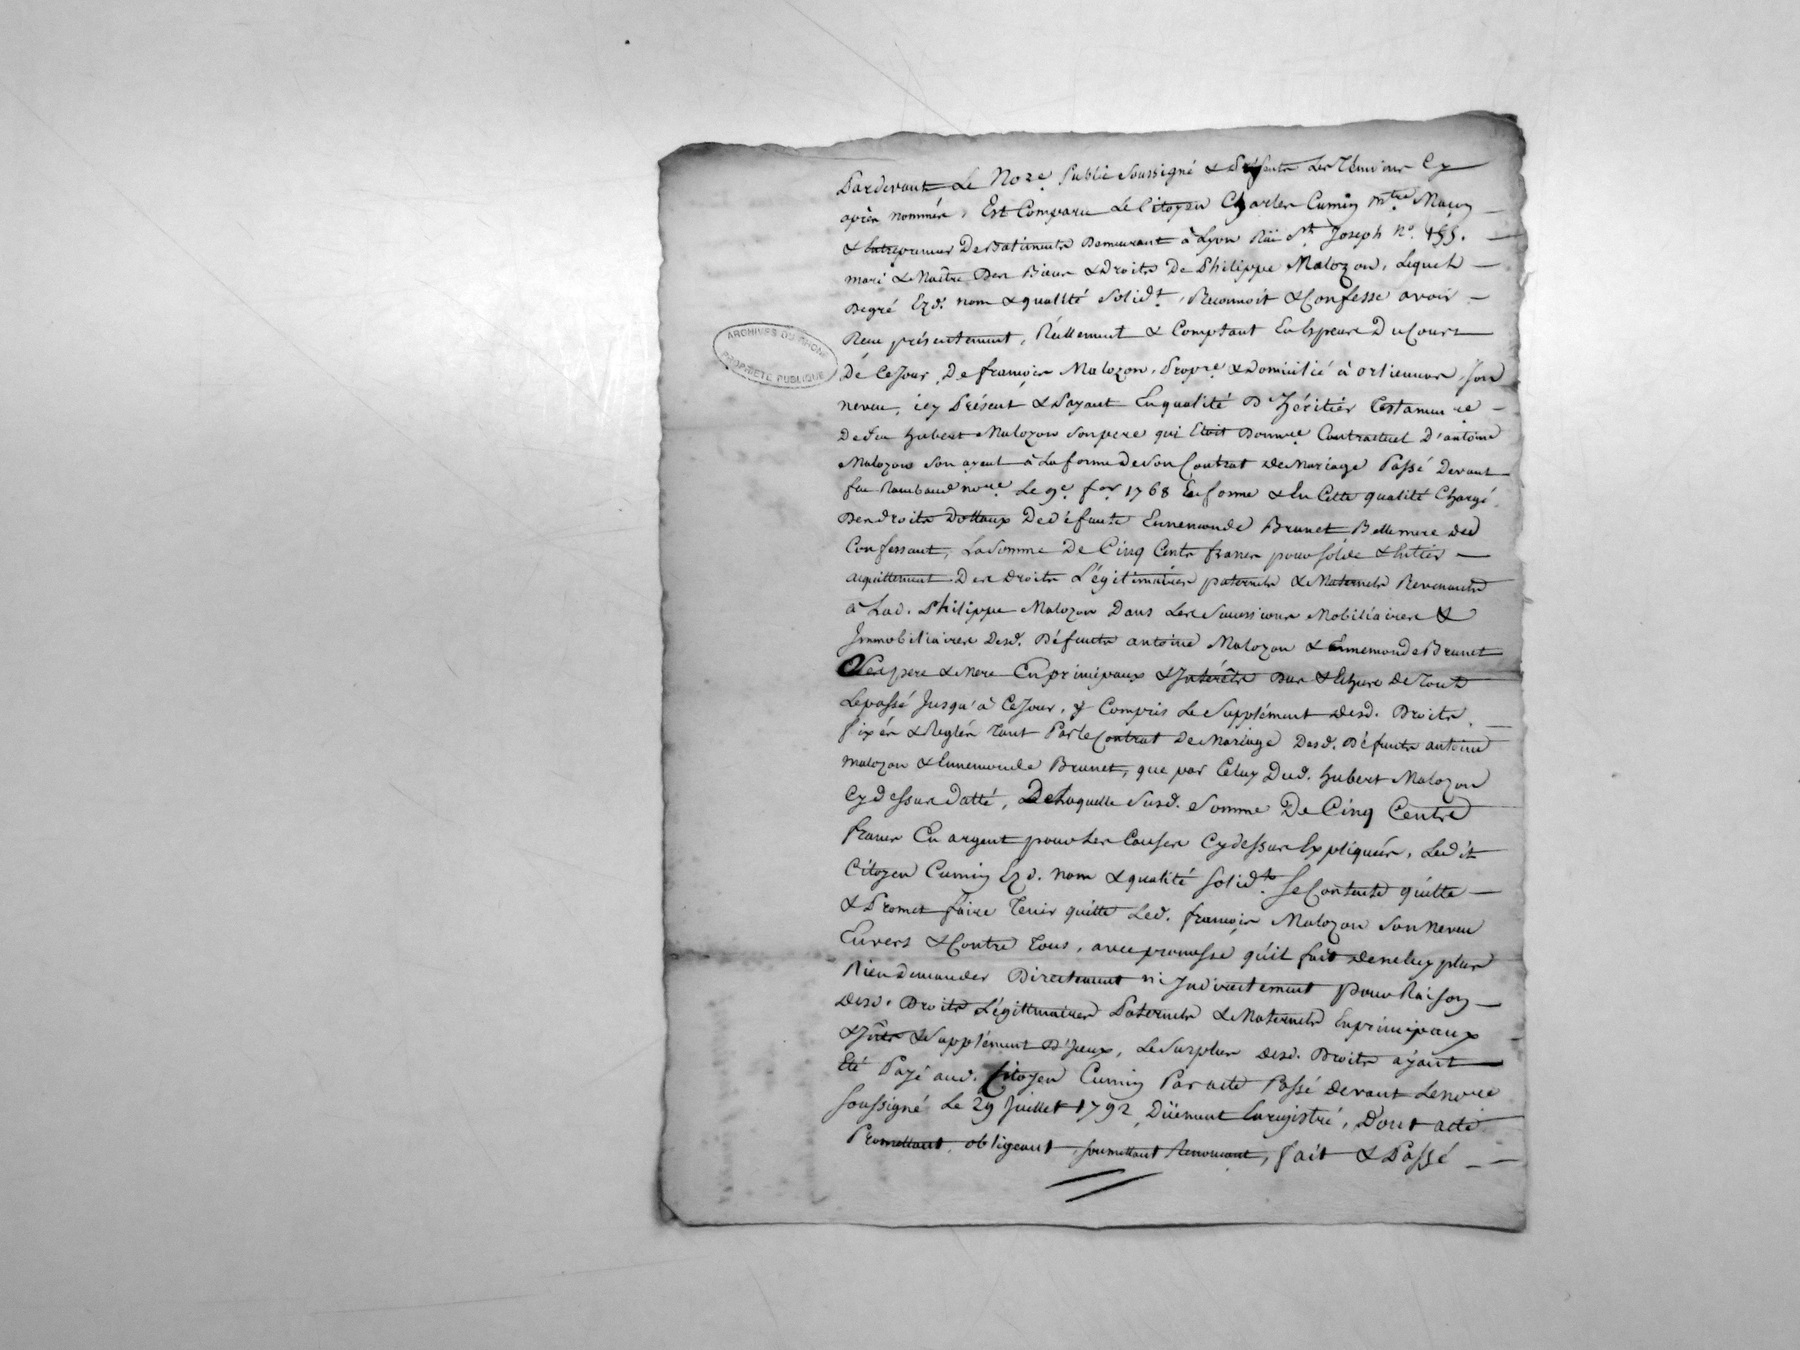 Pardevant Le No.re Public Soussigné & Présents Les Témoins Cy
après nommés, Est Comparu Le Citoyen Charles Cumin m.tre Maçon
& Entrepreneur De Batiments Demeurant à Lyon Rüe St. Joseph N.o 155.
mari & Maître Des Biens & Droits De Philippe Malozon, Lequel
Degré Ezd. nom & qualité Solid.t, Reconnoit & Confesse avoir
Reçu présentement, Réellement & Comptant En Especes Du Cours
De Ce Jour, De françois Malozon, Prop.re & Domicilié à orlienas, Son
neveu, icy Présent & Payant En qualité D'Héritier Testamen.re
De feu Hubert Malozon Son pere qui Etoit Donn.re Contractuel D'antoine
Malozon Son ayeul à La forme De Son Contrat de Mariage Passé Devant
feu Rambaud no.re Le 9.e f.er 1768 En forme & En Cette qualité Chargé
Des droits Dottaux De défunte Ennemonde Brunet Bellemere dud
Confessant, La Somme De Cinq Cents francs pour Solde & Entier
acquittement Des droits Légitimaires paternels & Maternels Revenants
à Lad. Philippe Malozon Dans Les Successions Mobiliaires &
Immobiliaires Desd. Défunts antoine Malozon & Ennemonde Brunet
Ses pere & Mere En principaux & Intérêts Dus & Echus de Tout
Le passé Jusqu'à Ce Jour, y Compris Le Supplément Desd. Droits
fixés & Réglés Tant Par Le Contrat De Mariage Desd. Défunts antoine
Malozon & Ennemonde Brunet, que par Celuy Dud. Hubert Malozon
Cydessus Datté, De Laquelle Susd. Somme De Cinq Cents
francs En argent pour Les Causes Cydessus Expliquées, Ledit
Citoyen Cumin Ezd. nom & qualité Solid.t Se Contente quitte
& Promet faire Tenir quitte Led. françois Malozon Son Neveu
Envers & Contre Tous, avec promesse qu'il fait de ne luy plus
Rien demander Directement ni Indirectement pour Raison
Desd. Droits Légitimaires Paternels & Maternels En principaux
& Ints & Supplément D'Iceux, Le Surplus Desd. Droits ayant
Eté Payé aud. Citoyen Cumin Par acte Passé devant Le no.re
Soussigné Le 29 Juillet 1792, Düement Enregistré, Dont acte
Promettant, obligeant, Soumettant Renonçant, fait & Passé
ARCHIVES DU RHONE
PROPRIÉTÉ PUBLIQUE